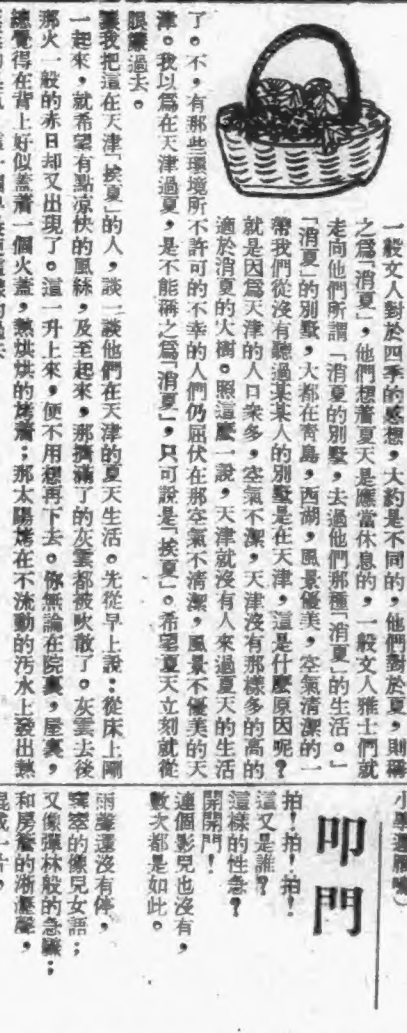 一般文人對於四季的感想,大約是不同的,他們對於夏,則稱
之爲「消夏」,他們想着夏天是應當休息的,一般文人雅士們就
走向他們所謂「消夏的別墅,去過他們那種「消夏」的生活。」
「消夏」的別墅,大都在靑島,西湖,風景優美,空氣清潔的一
帶我們從沒有聽過某某人的別墅是在天津,這是什麽原因呢?
就是因爲天津的人口衆多,空氣不潔,天津沒有那樣多的高的
適於消夏的大樹。照這麽一說,天津就沒有人來過夏天的生活
了。不,有那些環境所不許可的不幸的人們仍屈伏在那空氣不清潔,風景不優美的天
津。我以爲在天津過夏,是不能稱之爲「消夏」,只可說是「挨夏」。希望夏天立刻就從
眼簾過去。
讓我把這在天津「挨夏」的人,談一談他們在天津的夏天生活。先從早上說:從床上剛
一起來,就希望有點涼快的風絲,及至起來,那擠滿了的灰雲都被吹散了。灰雲去後
那火一般的赤日却又出現了。這一升上來,便不用想再下去。你無論在院裏,屋裏,
總覺得在背上好似蓋着一個火蓋,熱烘烘的烤着;那太陽烤在不流動的汚水上發出熱
叩門
拍!拍!拍!
這又是誰?
這樣的性急?
開開門!
連個影兒也沒有,
數次都是如此。
雨聲還沒有停,
的像兒女語;
又像彈林般的急驟;
和房簷的淅瀝聲,
混成一片,